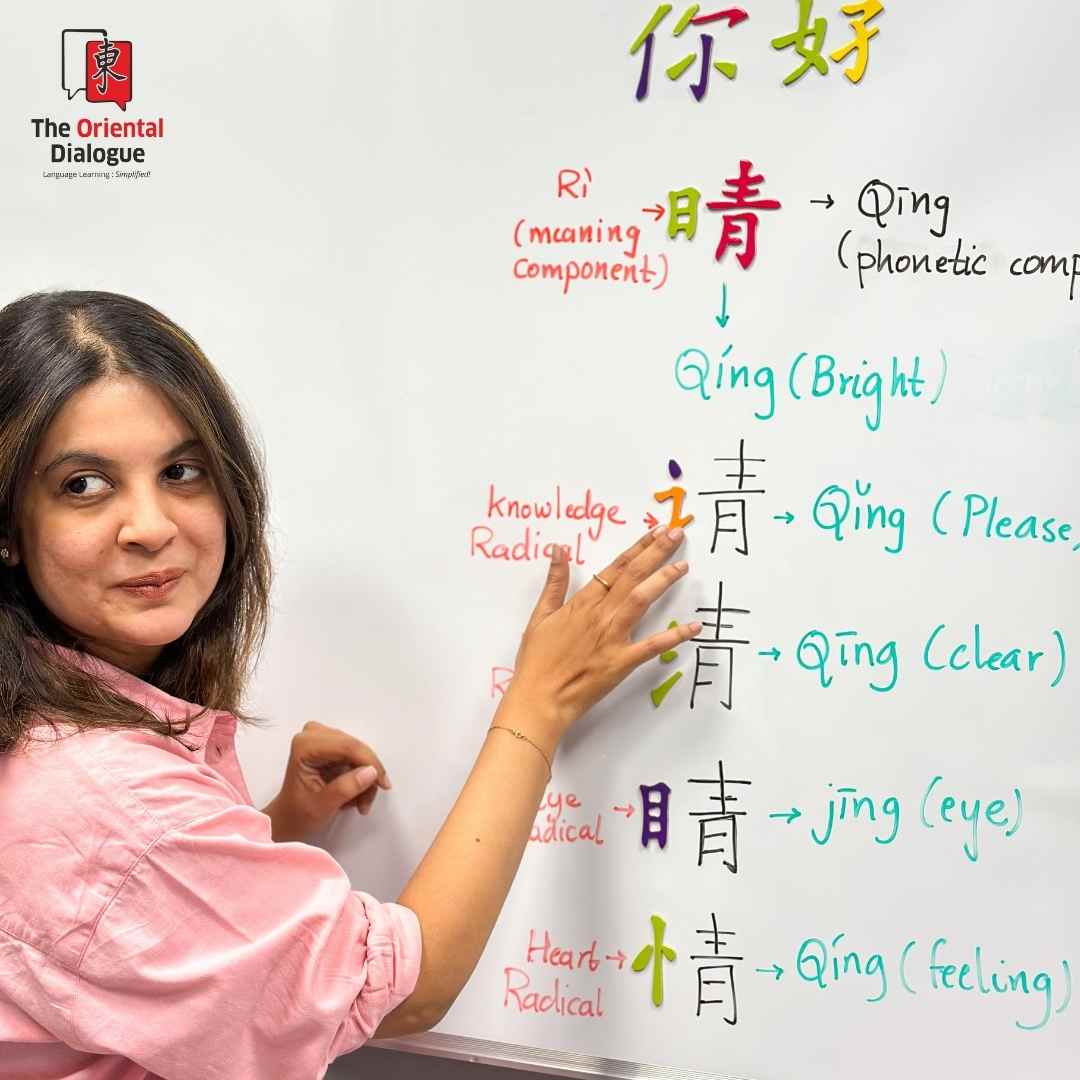 東
The Oriental
Dialogue
Language Learning : Simplified!
你好
Rì
(meaning
component)
→ 晴 → Qīng
(phonetic comp
↓
Qíng (Bright)
Knowledge
Radical
→ 请 → Qǐng (Please,
清 → Qīng (clear)
eye
Radical
→ 睛 → jīng (eye)
Heart
Radical
→ 情 → Qíng (feeling)